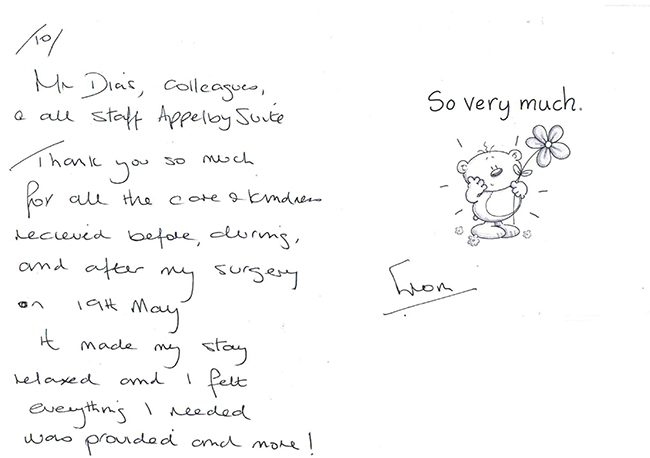 To/
Mr Dias, colleagues,
& all staff Appelby Suite
Thank you so much
for all the care & kindness
recieved before, during,
and after my surgery
on 19th May
It made my stay
relaxed and I felt
everything I needed
was provided and more!
So very much.
From